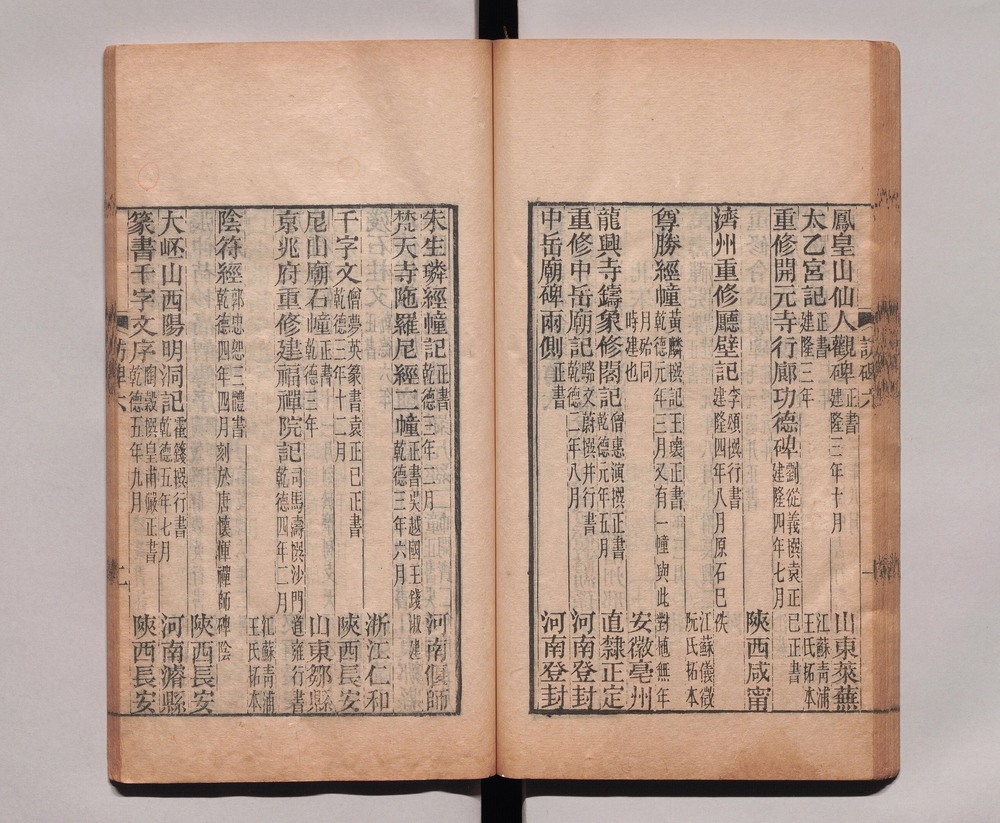 鳳皇山仙人觀碑 正書 建隆三年十月 山東萊蕪
太乙宮記 正書 建隆三年 江蘇青浦王氏拓本
重修開元寺行廊功德碑 劉從義撰袁正己正書 建隆四年七月 陝西咸甯
濟州重修廳壁記 李頌撰行書 建隆四年八月原石已佚 江蘇儀徵阮氏拓本
尊勝經幢 黃麟撰記王瓌正書 乾德元年三月又有一幢與此對峙無年月殆同時建也 安徽亳州
龍興寺鑄象修閣記 僧惠演撰正書 乾德元年五月 直隸正定
重修中岳廟記 駱文蔚撰并行書 乾德二年八月 河南登封
中岳廟碑兩側 正書 河南登封
訪碑六
一
朱生璘經幢記 正書 乾德三年二月 河南偃師
梵天寺陁羅尼經二幢 正書吳越國王錢俶建 乾德三年六月 浙江仁和
千字文 僧夢英篆書袁正巳正書 乾德三年十二月 陝西長安
尼山廟石幢 正書 乾德三年 山東鄒縣
京兆府重修建福禪院記 司馬濤撰沙門道雍行書 乾德四年二月 江蘇青浦王氏拓本
陰符經 郭忠恕三體書 乾德四年四月刻於唐懷惲禪師碑陰 陝西長安
大岯山西陽明洞記 霍錢撰行書 乾德五年七月 河南濬縣
篆書千字文序 陶穀撰皇甫儼正書 乾德五年九月 陝西長安
訪碑六
二